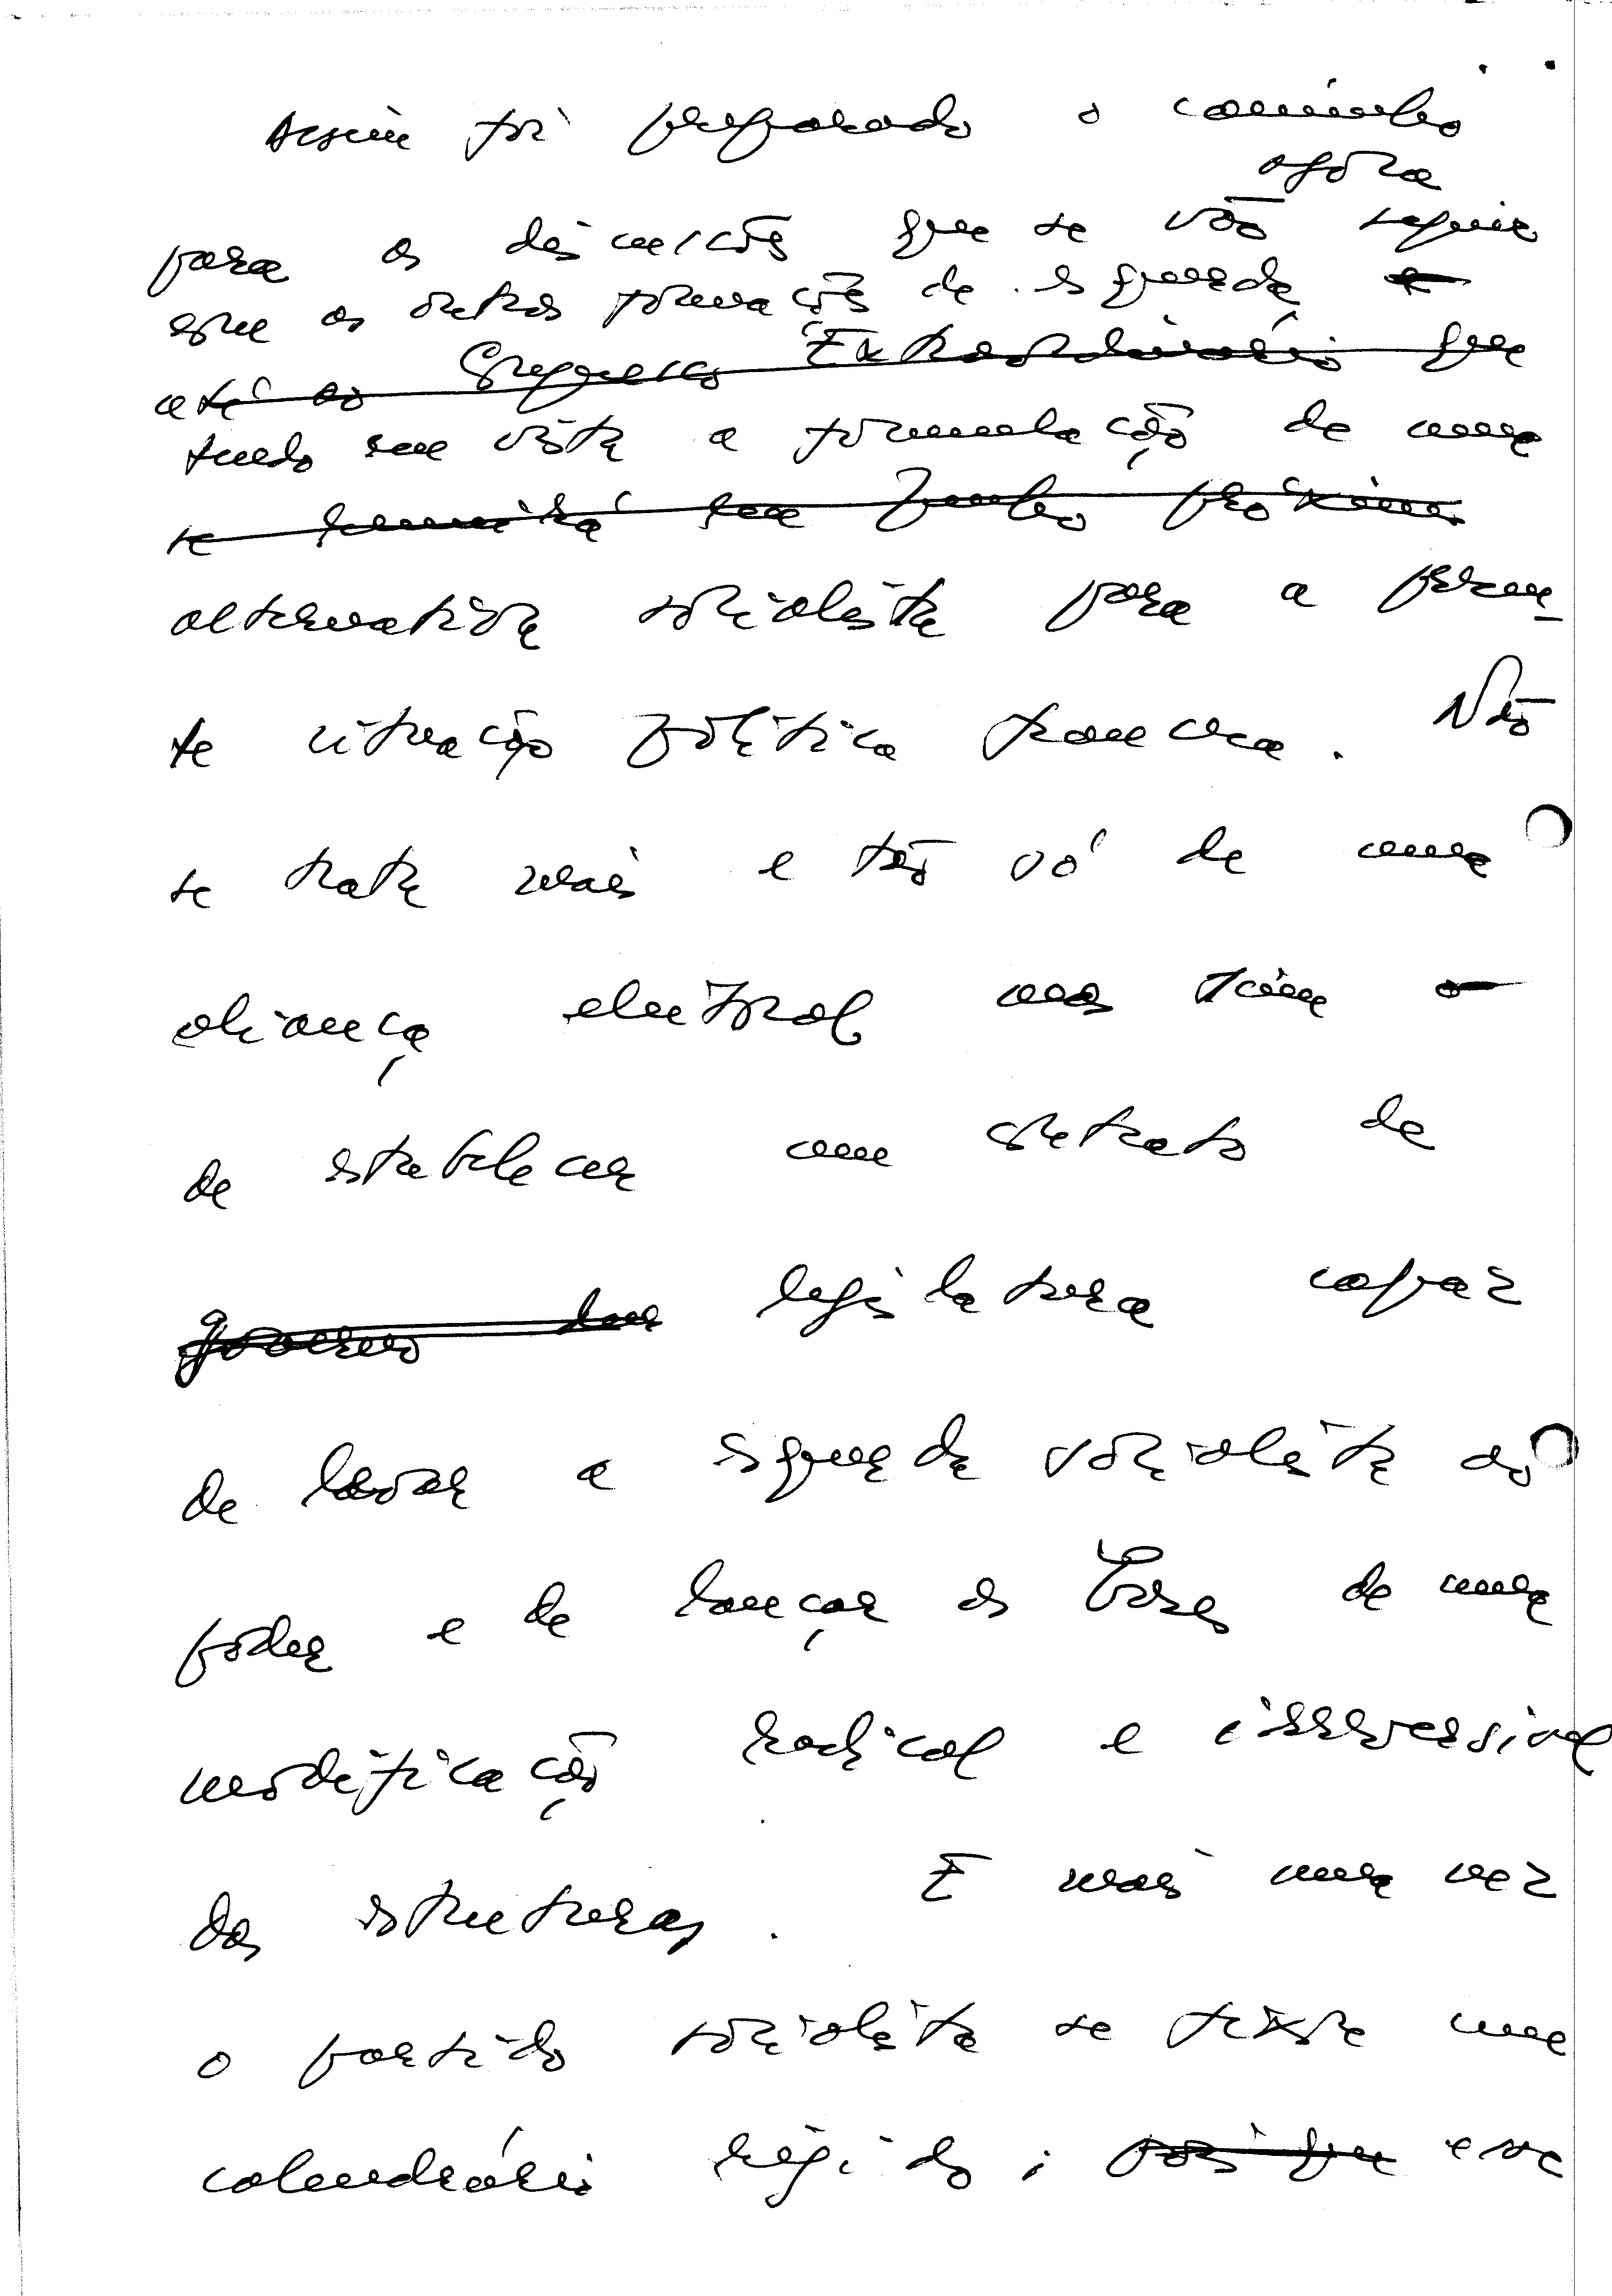 Assim foi preparado o caminho
agora
para as discussões que se vão seguir
com as outras formações de esquerda e
até ao Congresso Extraordinário que
tendo em vista a formulação de uma
se reunirá em Junho próximo
alternativa socialista para a presen-
te situação política francesa. Não
se trata mais e tão só de uma
aliança eleitoral mas sim o
de estabelecer um contrato de
governo de legislatura capaz
de levar a esquerda socialista ao
poder e de lançar as bases de uma
modificação radical e irreversivel
das estruturas. E mais uma vez
o partido socialista se fixou um
calendário rígido; pois que